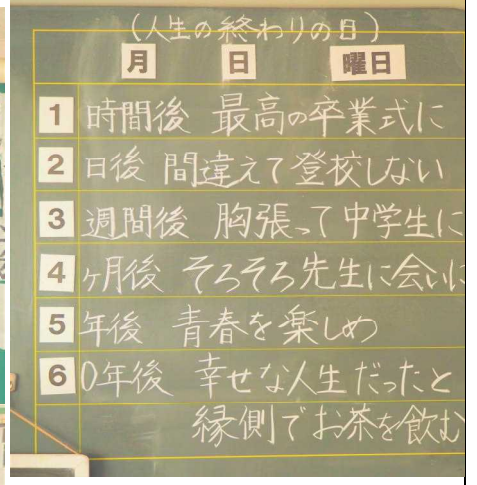 (人生の終わりの日)
月 日 曜日
1 時間後 最高の卒業式に
2 日後 間違えて登校しない
3 週間後 胸張って中学生に
4 ヶ月後 そろそろ先生に会いに
5 年後 青春を楽しめ
6 0年後 幸せな人生だったと
縁側でお茶を飲む